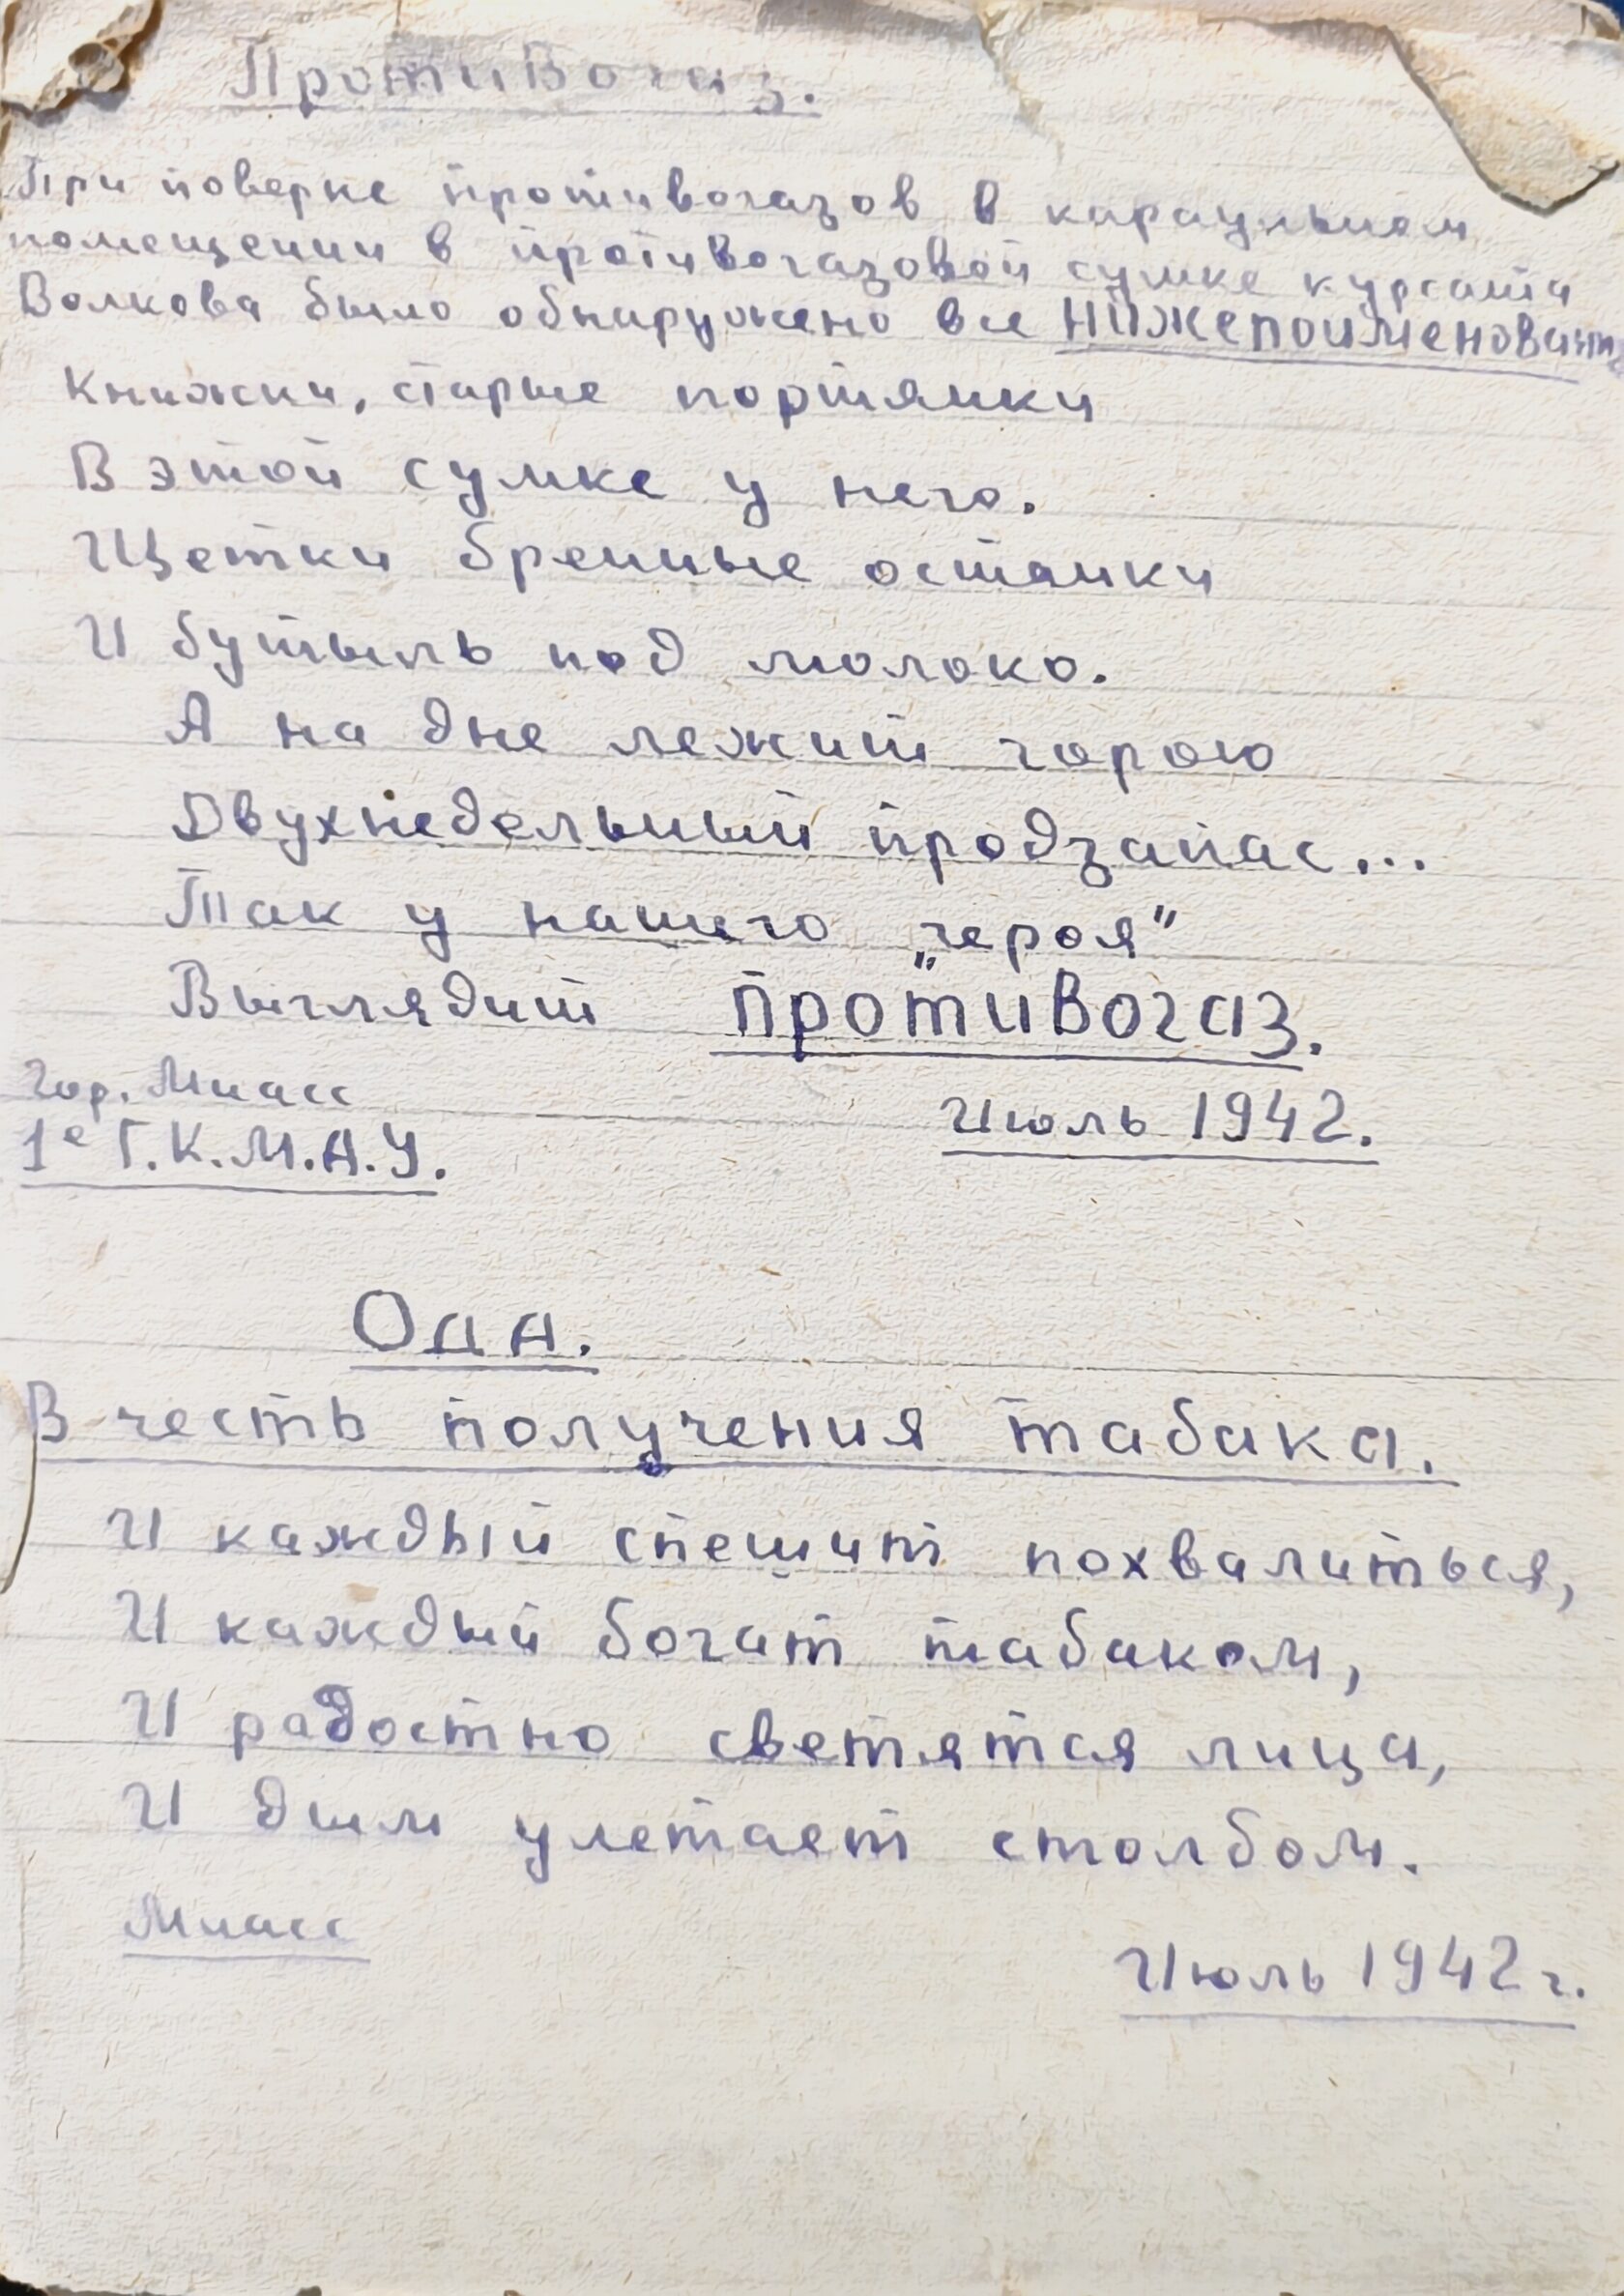 Противогаз.
При поверке противогазов в караульном
помещении в противогазовой сумке курсанта
Волкова было обнаружено все нижепоименован
Книжки, старые портянки
В этой сумке у него.
Щетки бренные останки
И бутыль под молоко.
А на дне лежит горою
Двухнедельный продзапас...
Так у нашего „героя"
Выглядит "противогаз.
Гор. Миасс
Июль 1942.
1е Г.К.М.А.У.
Ода.
В честь получения табака.
И каждый спешит похвалиться,
И каждый богат табаком,
И радостно светятся лица,
И дым улетает столбом.
Миасс
Июль 1942 г.